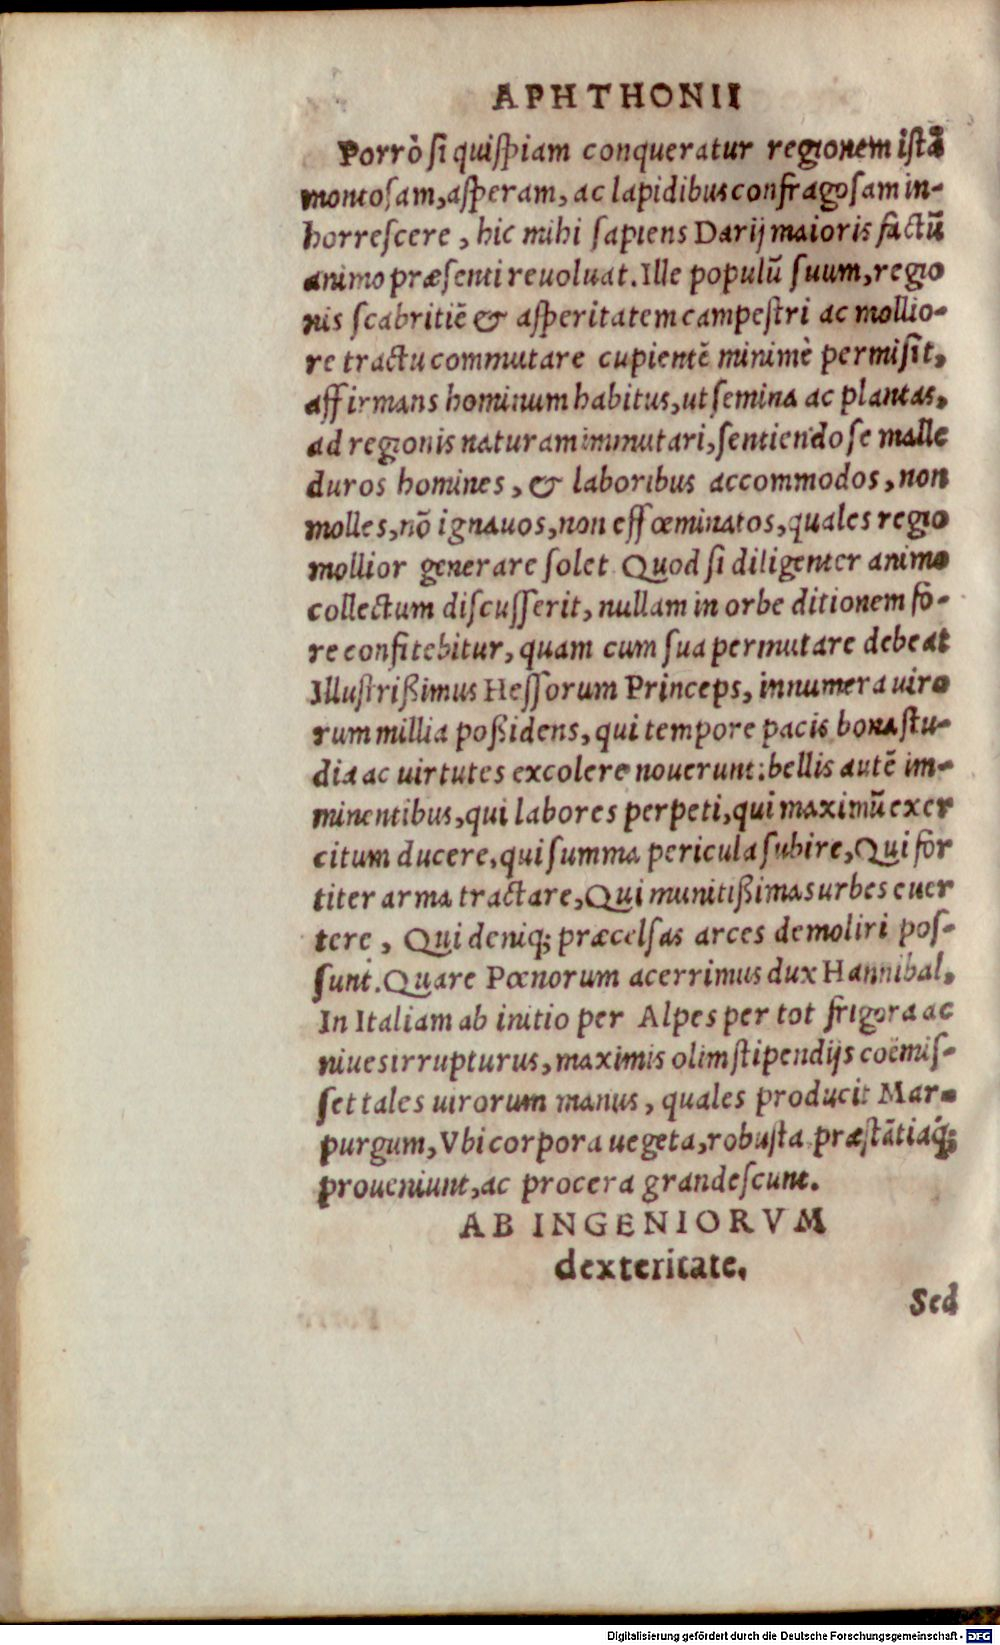 APHTHONII
Porrò ſi quiſpiam conqueratur regionem iſtã
montoſam, aſperam, ac lapidibus confragoſam in-
horreſcere, hic mihi ſapiens Darij maioris factũ
animo præſenti reuoluat. Ille populũ ſuum, regio
nis ſcabritiẽ & aſperitatem campeſtri ac mollio-
re tractu commutare cupientẽ minimè permiſit,
affirmans hominum habitus, ut ſemina ac plantas,
ad regionis naturam immutari, ſentiendo ſe malle
duros homines, & laboribus accommodos, non
molles, nõ ignauos, non effœminatos, quales regio
mollior generare ſolet Quod ſi diligenter animo
collectum diſcuſſerit, nullam in orbe ditionem fo-
re confitebitur, quam cum ſua permutare debeat
Illuſtrißimus Heſſorum Princeps, innumera uiro
rum millia poßidens, qui tempore pacis bona ſtu-
dia ac uirtutes excolere nouerunt: bellis autẽ im-
minentibus, qui labores perpeti, qui maximũ exer
citum ducere, qui ſumma pericula ſubire, Qui for
titer arma tractare, Qui munitißimas urbes euer
tere, Qui deniq; præcelſas arces demoliri poſ-
ſunt. Quare Pœnorum acerrimus dux Hannibal,
In Italiam ab initio per Alpes per tot frigora ac
niues irrupturus, maximis olim ſtipendijs coëmiſ-
ſet tales uirorum manus, quales producit Mar-
purgum, Vbi corpora uegeta, robuſta præſtãtiaq́;
proueniunt, ac procera grandeſcunt.
AB INGENIORVM
dexteritate.
Sed
Digitalisierung gefördert durch die Deutsche Forschungsgemeinschaft - DFG